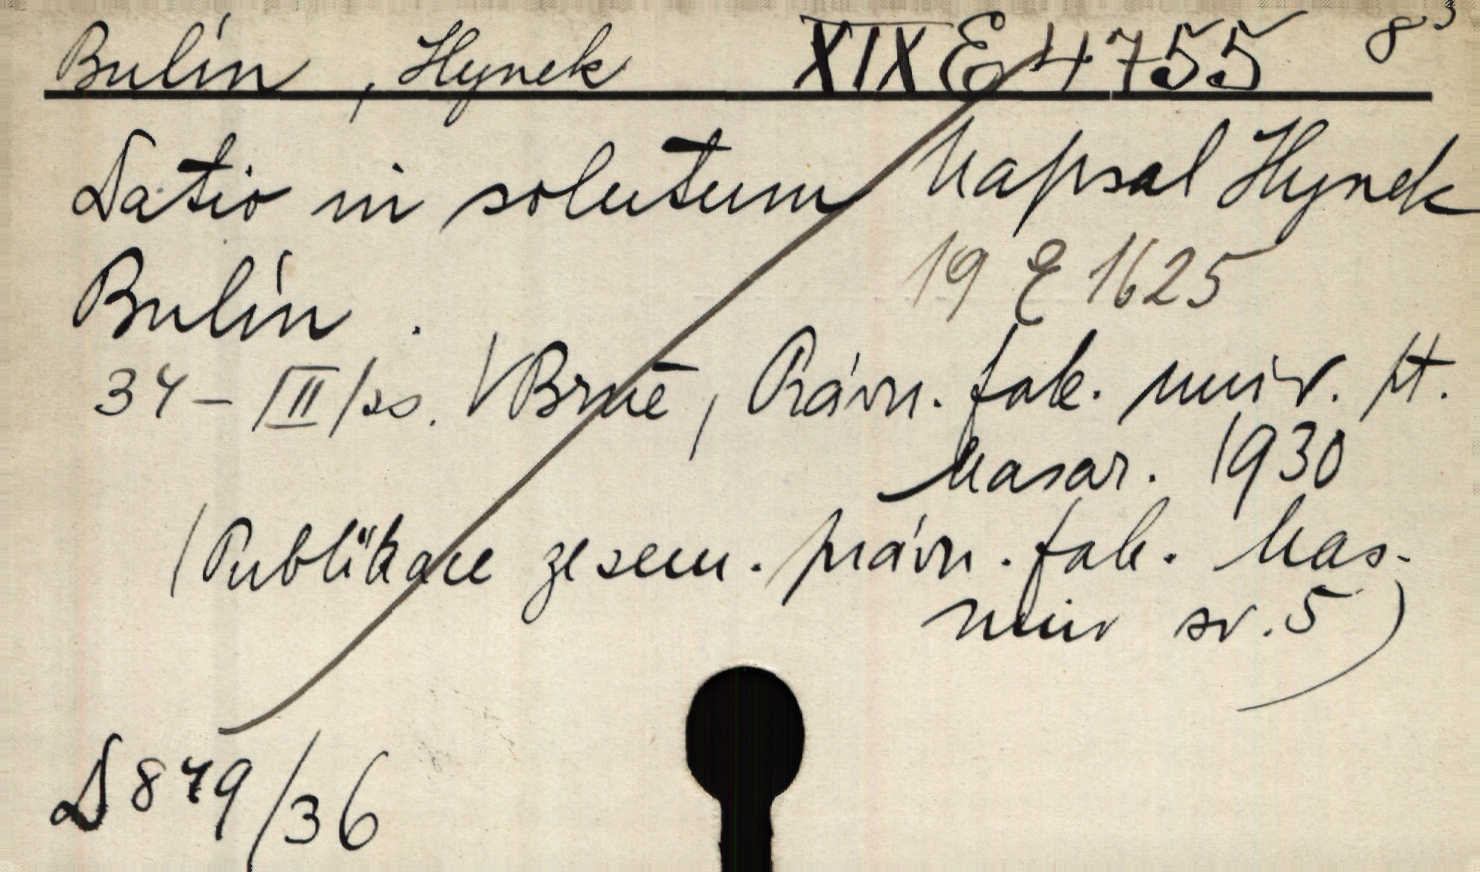 Bulín, Hynek XIX E 4755 8°
Datio in solutum Napsal Hynek
Bulín.
19 E 1625
34 - |II|ss. V Brně, Právn. fak. univ. pt.
Masar. 1930
(Publikace ze sem. právn. fak. Mas.
univ sv. 5)
D 879/36